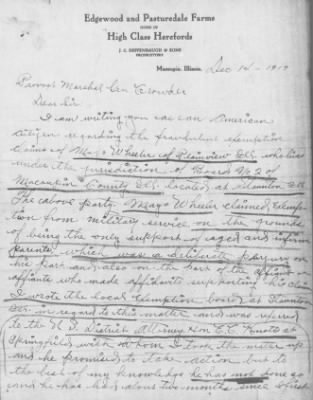 Edgewood and Pasturedale Farms
HOME OF
High Class Herefords
J. C. DIEFFENBAUGH & SONS
PROPRIETORS
Munopia, Illinois, Dec 14 - 1917
Provost Marshal Gen Crowder
Dear Sir.
I am writing you as an American
citizen regarding the fraudulent exemption
claims of Mayo Wheeler of Plainview Ill. who lives
under the jurisdiction of Board No 2 of
Macoupin County Ills. located at Staunton Ill
The above party Mayo Wheeler claimed Exemp-
tion from military service on the grounds
of being the only support of aged and infirm
parents which was a deliberate perjury on
his part and also on the part of the
affiants who made affidavits supporting his claim
I wrote the local Exemption board at Staunton
Ill in regard to this matter and was referred
to the U. S. District Attorney Hon E C Knotts at
Springfield with whom I took the matter up
and he promised to take action but to
the best of my knowledge he has not done so
and he has had about two months since I first